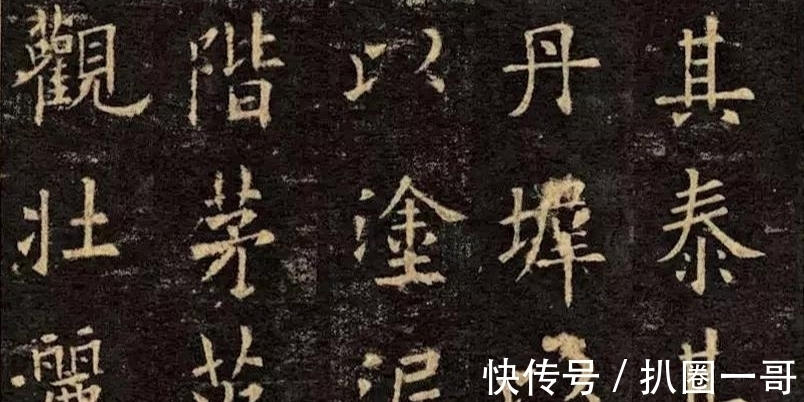 其泰甚
丹墀
以塗泥
階茅茨
觀壯麗
快传号 / 扒圈一哥